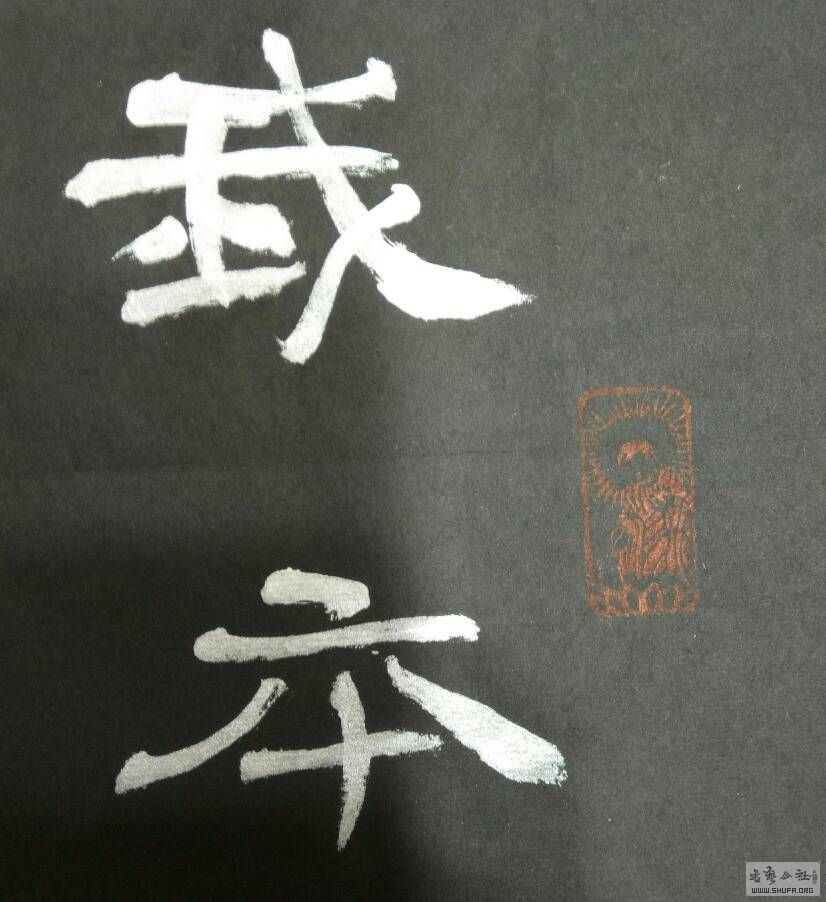 我
本
书艺公社
WWW.SHUFA.ORG